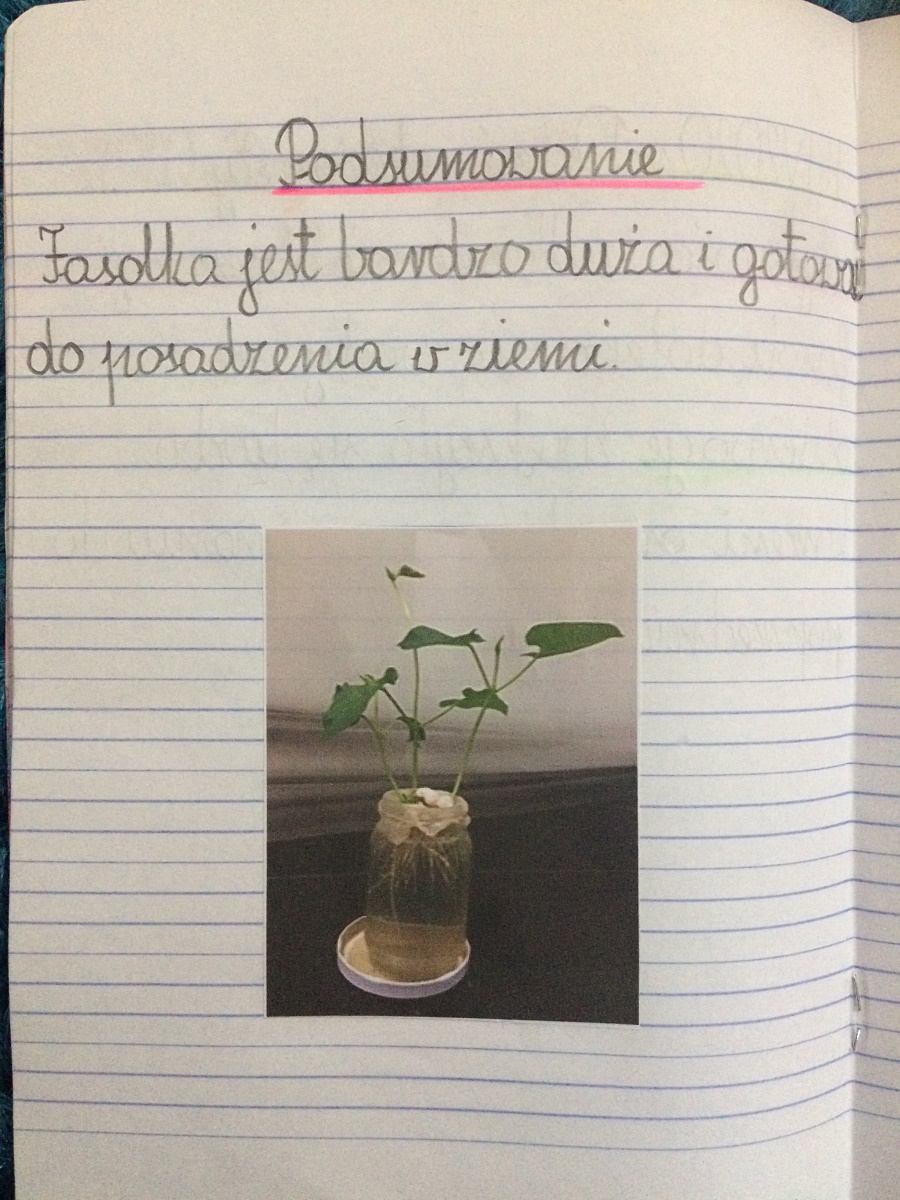 Podsumowanie
Fasolka jest bardzo duża i gotowa
do posadzenia w ziemi.